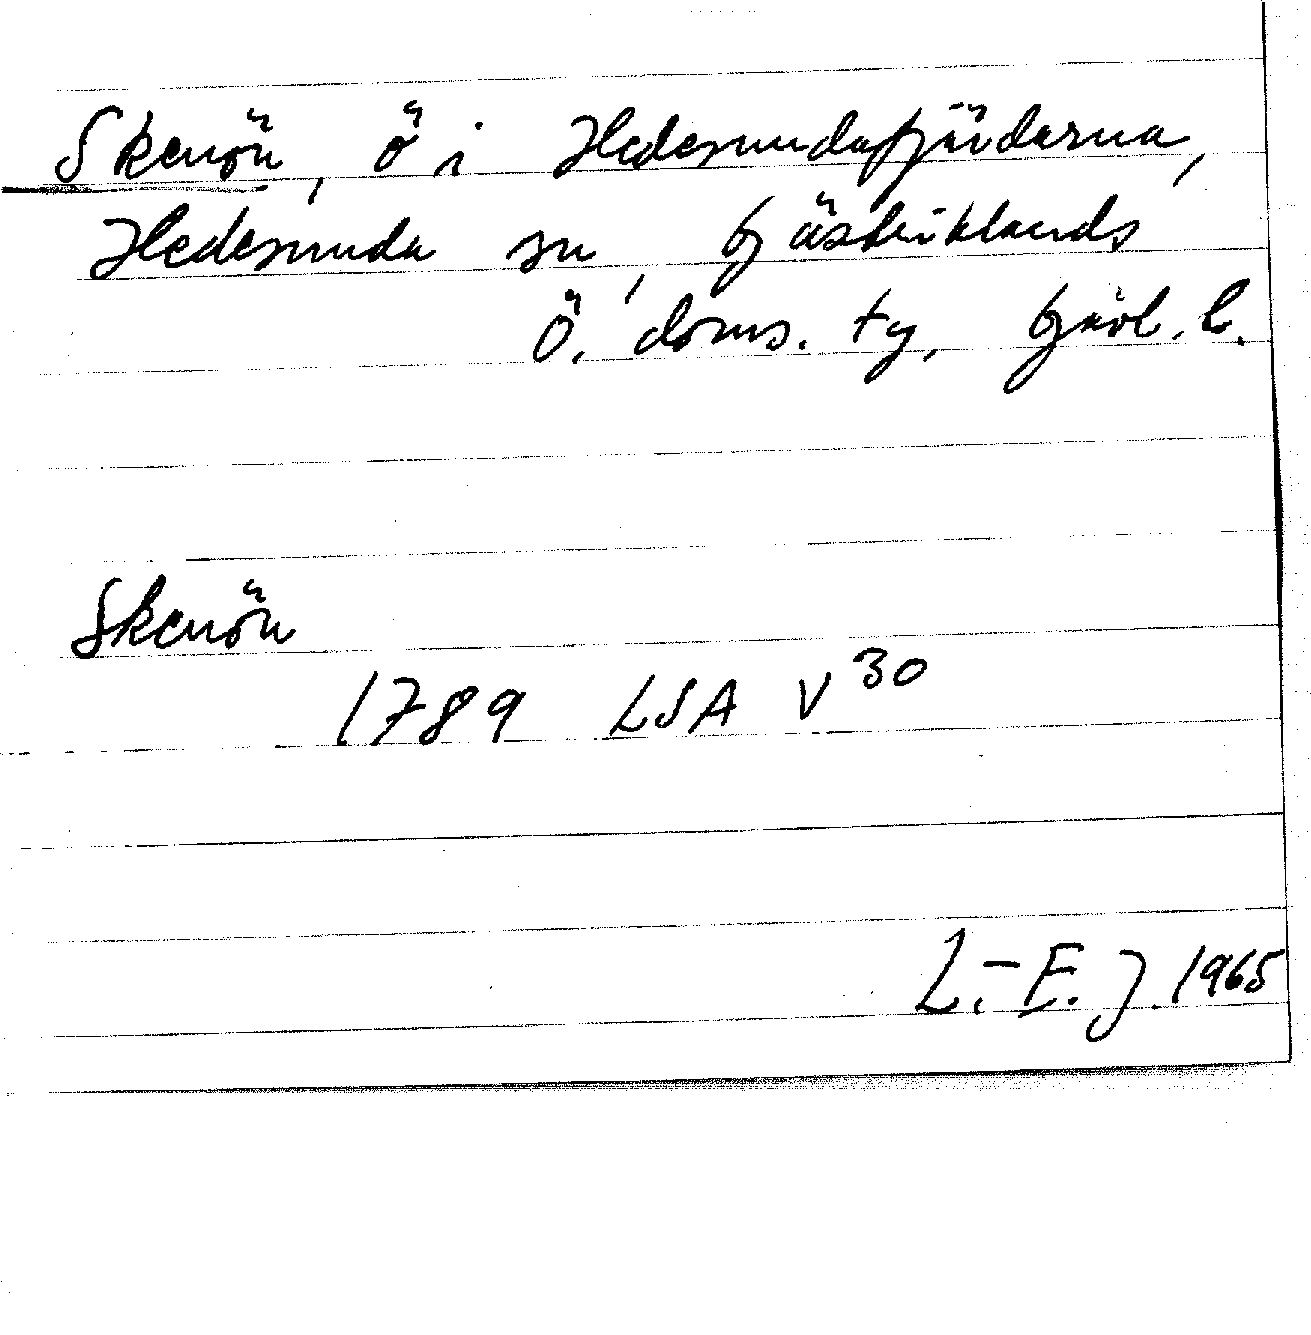 Skenön, ö i Hedesundafjärdarna,
Hedesunda sn, Gästriklands
Ö. doms. tg, Gävl. l.
Skenön
1789 LSA V 30
L.-E. J. 1965